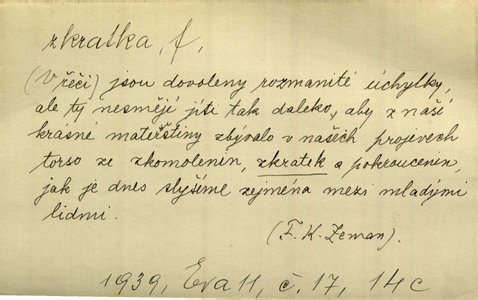 zkratka, f,
(V řeči) jsou dovoleny rozmanité úchylky,
ale ty nesmějí jíti tak daleko, aby z naší
krásné mateřštiny zbývalo v našich projevech
torso ze zkomolenin, zkratek a pokroucenin,
jak je dnes slyšíme zejména mezi mladými
lidmi.
(F. K. Zeman).
1939, Eva 11, č. 17, 14c